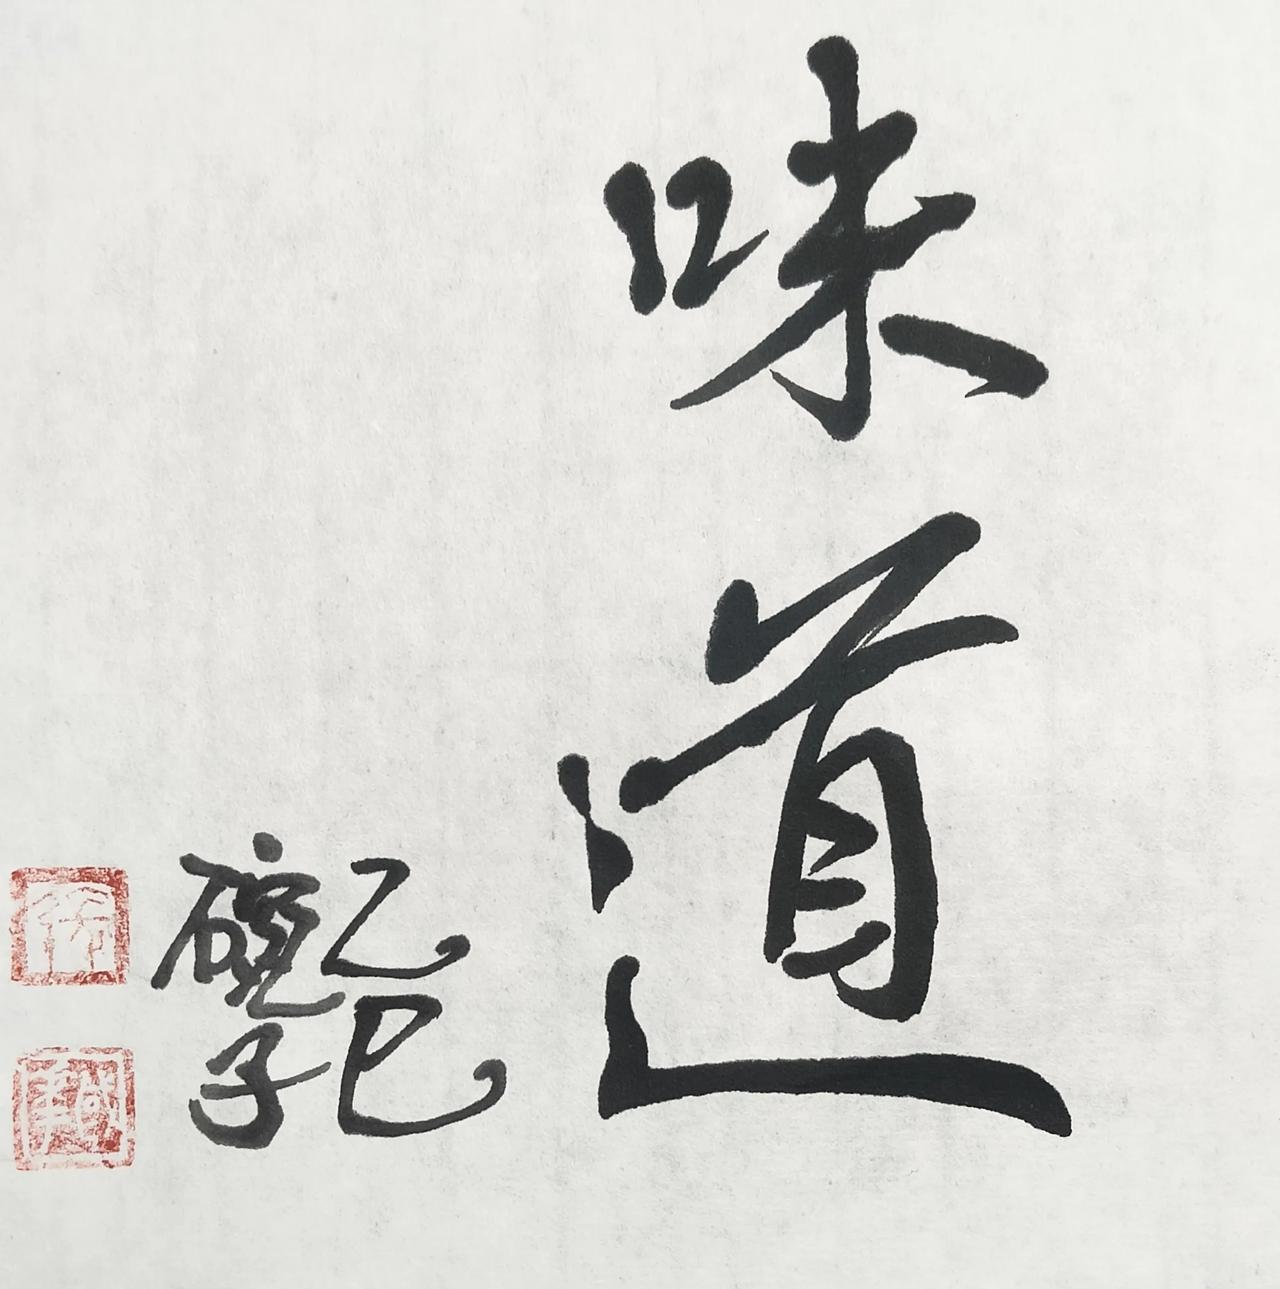 味道
乙巳
子